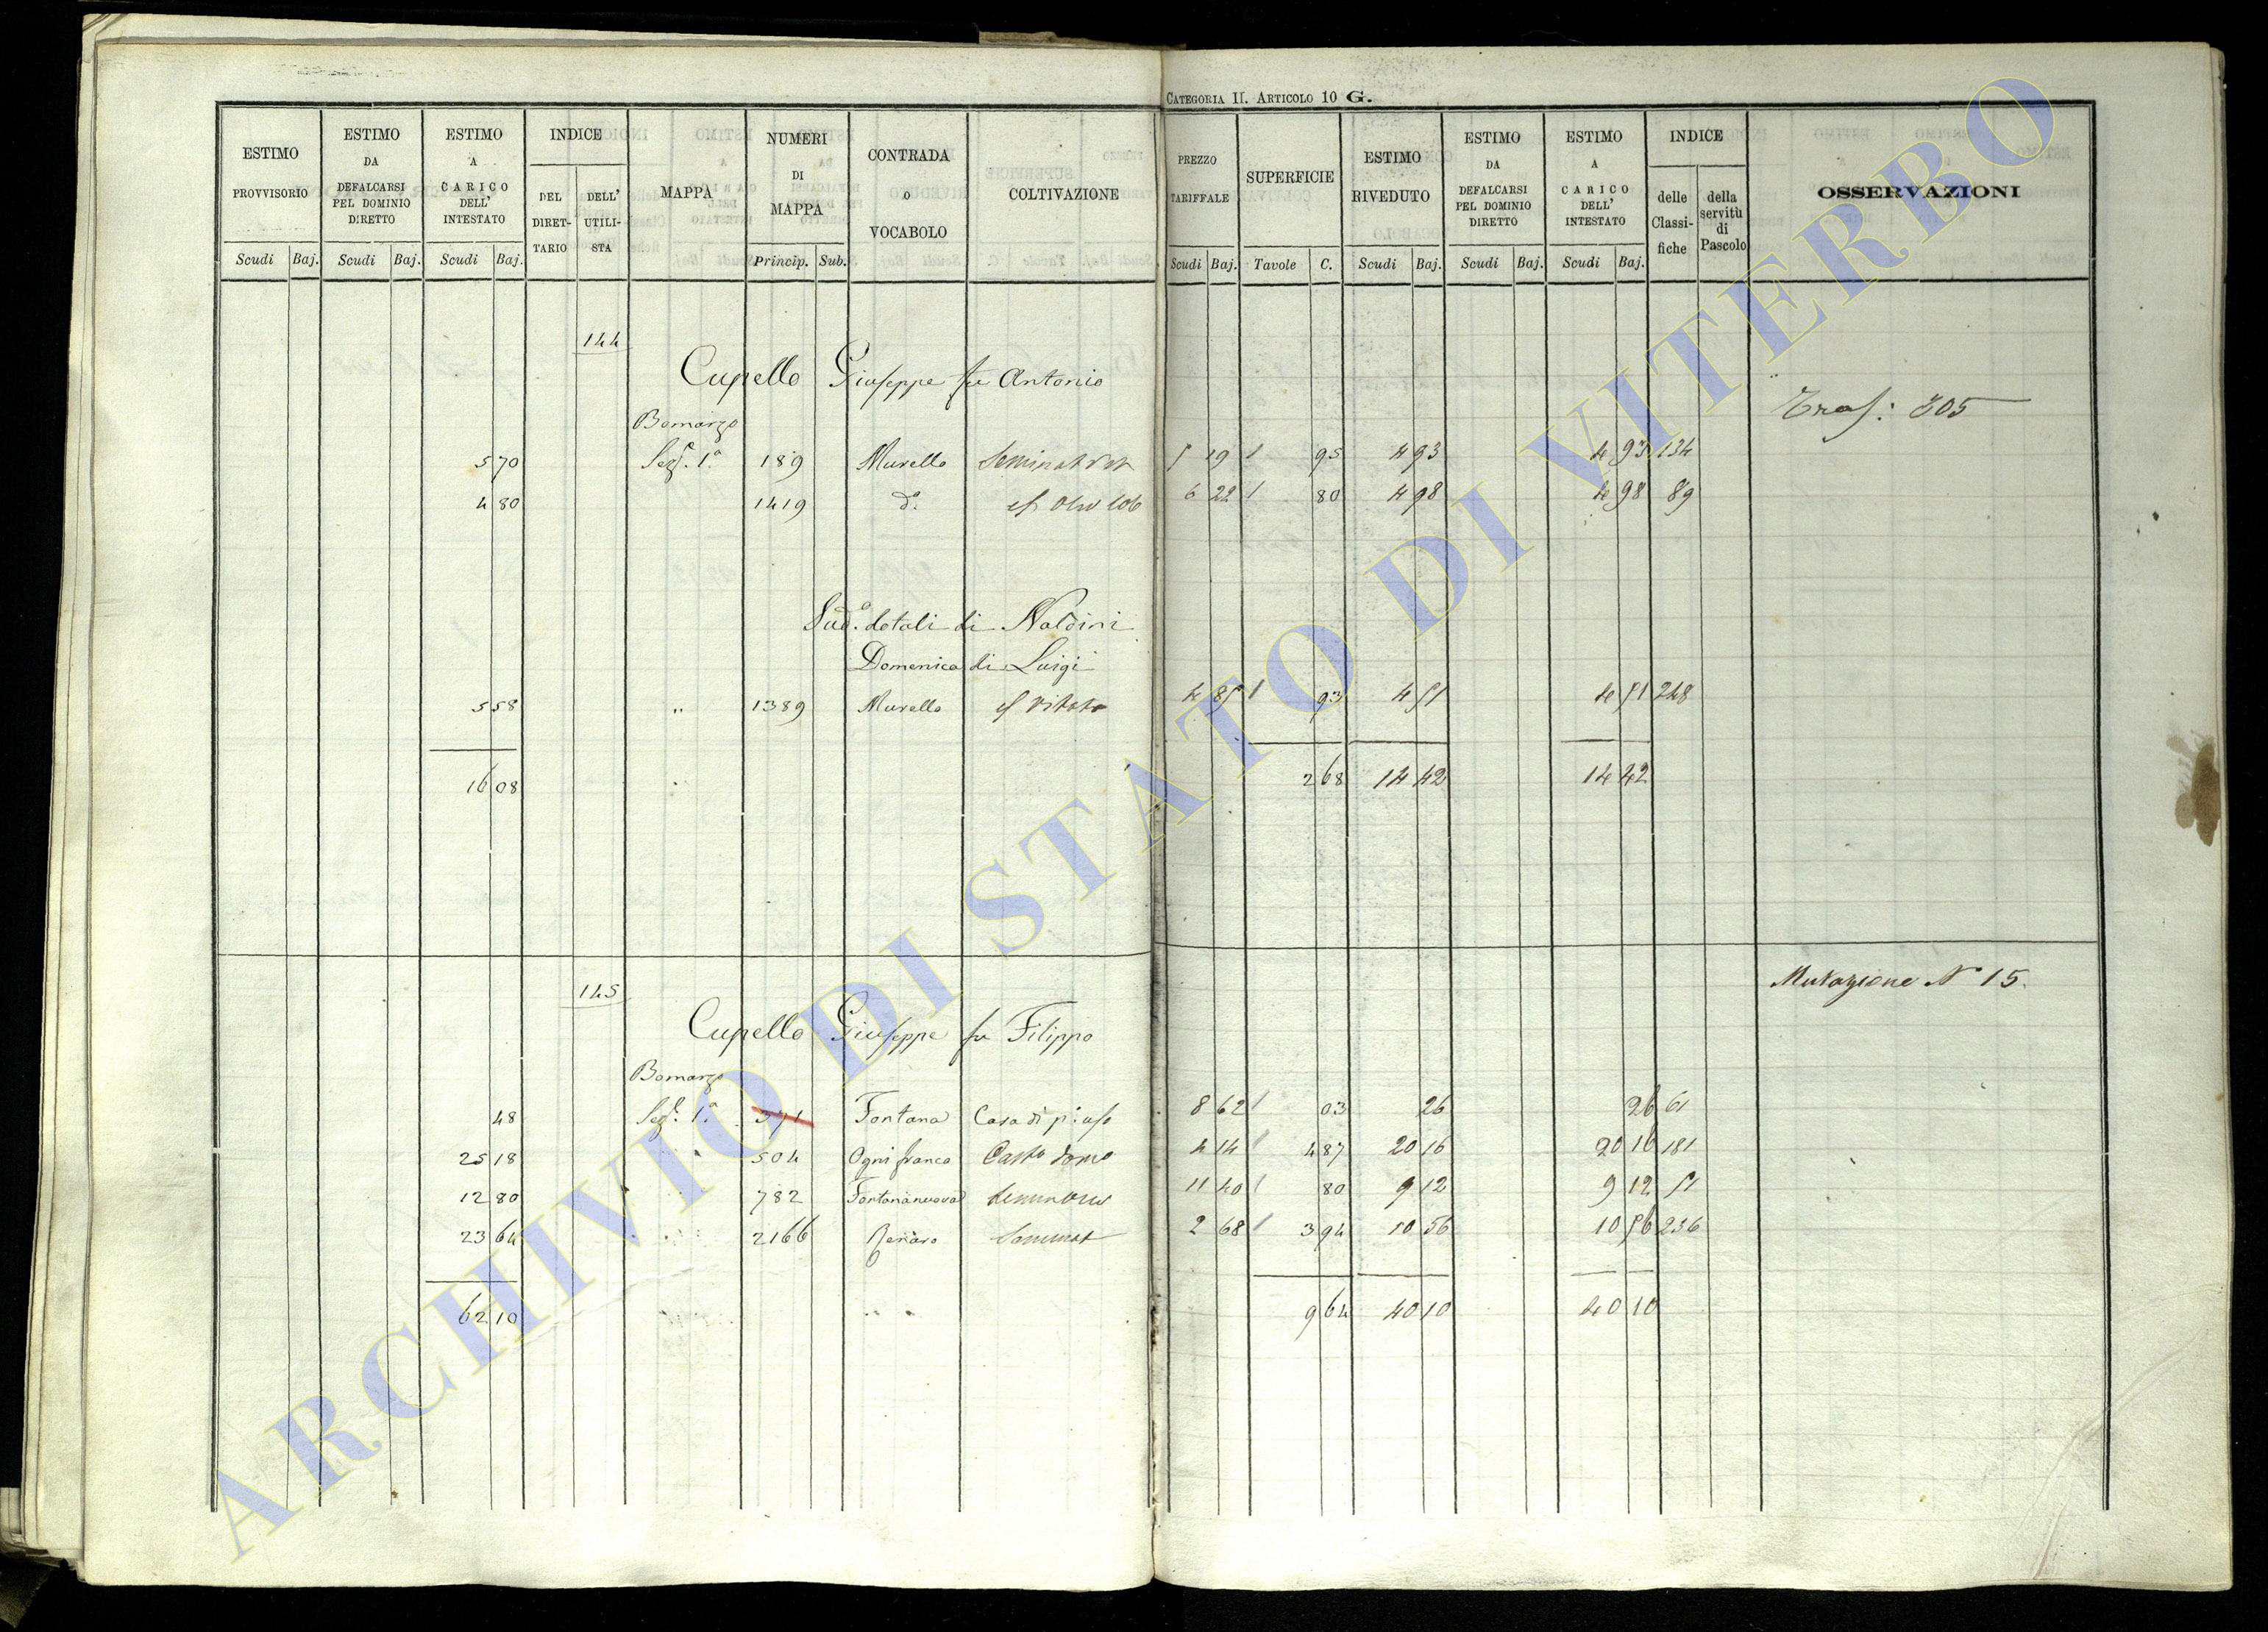 CATEGORIA II. ARTICOLO 10 G.
ESTIMO PROVVISORIO
Scudi Baj.
ESTIMO DA DEFALCARSI PEL DOMINIO DIRETTO
Scudi Baj.
ESTIMO A CARICO DELL' INTESTATO
Scudi Baj.
INDICE
DEL DIRET-TARIO
DELL' UTILI-STA
MAPPA
NUMERI DI MAPPA
Princip. Sub.
CONTRADA O VOCABOLO
COLTIVAZIONE
PREZZO TARIFFALE
Scudi Baj.
SUPERFICIE
Tavole C.
ESTIMO RIVEDUTO
Scudi Baj.
ESTIMO DA DEFALCARSI PEL DOMINIO DIRETTO
Scudi Baj.
ESTIMO A CARICO DELL' INTESTATO
Scudi Baj.
INDICE
delle Classi-fiche
della servitù di Pascolo
OSSERVAZIONI
144
Cupello Giuseppe fu Antonio
Tras: 305
Bomarzo
5 70 Sez. 1.ª 189 Murello 5 19 1 95 4 93 4 93 134
4 80 1419 d.º 6 22 1 80 4 98 4 98 89
Sud.º dotali di Naldini
Domenica di Luigi
5 58 " 1389 Murello vitato 4 85 1 93 4 51 4 51 248
16 08 2 68 14 42 14 42
145
Mutazione N° 15.
Cupello Giuseppe fu Filippo
Bomarzo
48 Sez. 1.ª 371 Fontana Casa di pº: uso 8 62 1 03 26 26 61
25 18 504 Ognifranco Casto domo 4 14 1 4 87 20 16 20 16 181
12 80 782 Fontananuova 11 40 1 80 9 12 9 12 51
23 64 2166 Seminat 2 68 1 3 94 10 56 10 56 236
62 10 9 64 40 10 40 10
ARCHIVIO DI STATO DI VITERBO